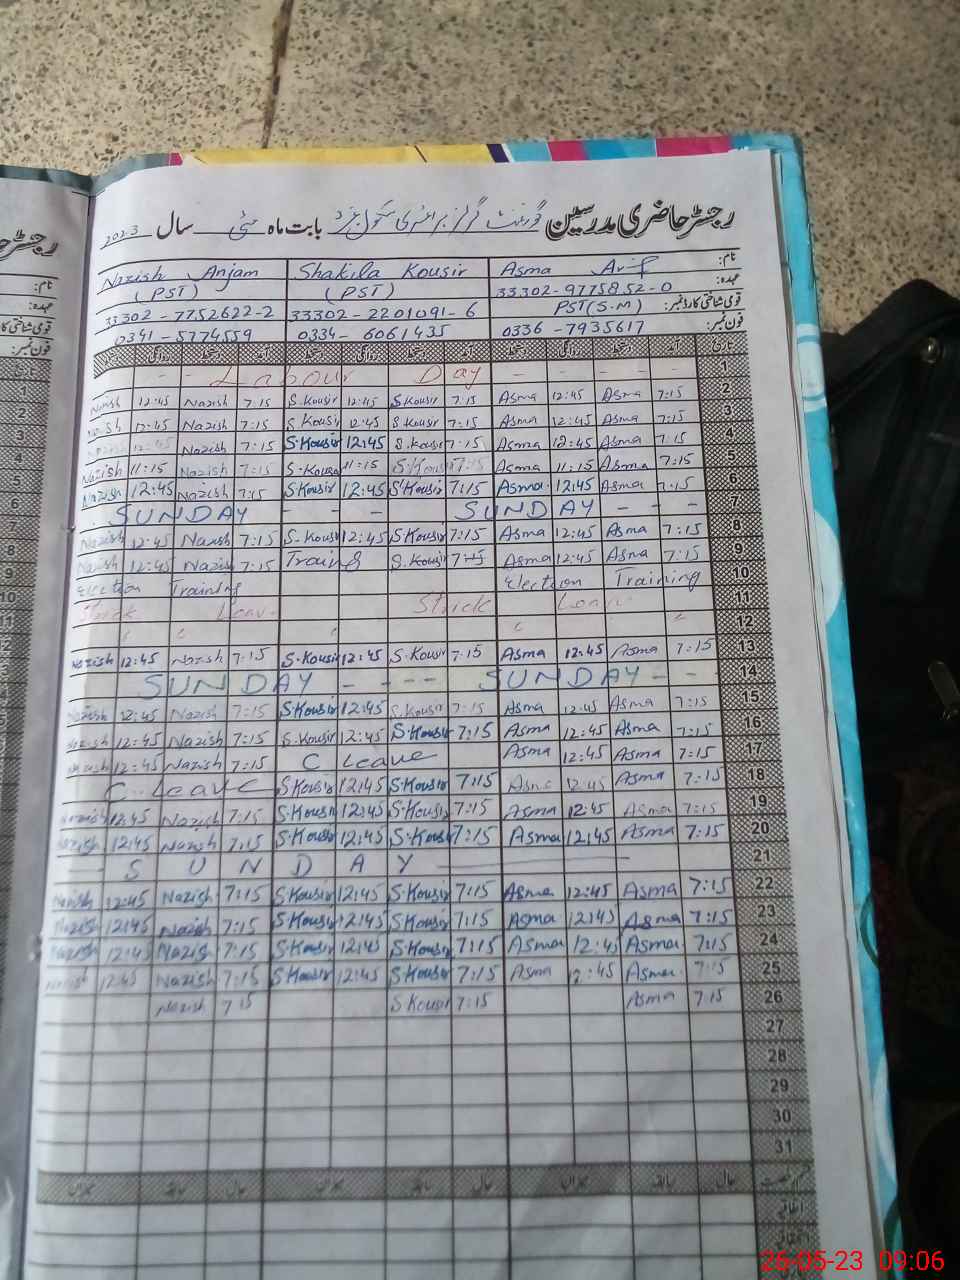 رجسٹر حاضری مدرسین گورنمنٹ گرلز پرائمری سکول بابت ماہ مئی سال 2023
نام: Asma Arif Shakila Kousir Nazish Anjam
عہدہ: 33302-9775852-0 (PST) (PST)
قومی شناختی کارڈ نمبر: PST(S.M) 33302-2201091-6 33302-7752622-2
فون نمبر: 0336-7935617 0334-6061435 0341-5774559
تاریخ آمد دستخط روانگی دستخط آمد دستخط روانگی دستخط آمد دستخط روانگی
- - Labour Day - - - - - 1
Nazish 12:45 Nazish 7:15 S.Kousir 12:45 S.Kousir 7:15 Asma 12:45 Asma 7:15 2
Nazish 12:45 Nazish 7:15 S.Kousir 12:45 S.Kousir 7:15 Asma 12:45 Asma 7:15 3
12:45 Nazish 7:15 S.Kousir 12:45 S.Kousir 7:15 Asma 12:45 Asma 7:15 4
Nazish 11:15 Nazish 7:15 S.Kousir 11:15 S.Kousir 7:15 Asma 11:15 Asma 7:15 5
Nazish 12:45 Nazish 7:15 S.Kousir 12:45 S.Kousir 7:15 Asma 12:45 Asma 7:15 6
SUNDAY - - - SUNDAY - - - 7
Nazish 12:45 Nazish 7:15 S.Kousir 12:45 S.Kousir 7:15 Asma 12:45 Asma 7:15 8
Nazish 12:45 Nazish 7:15 Traing S.Kousir 7:15 Asma 12:45 Asma 7:15 9
Election Training Election Training 10
Strick Leave Strick Leave 11
12
Nazish 12:45 Nazish 7:15 S.Kousir 12:45 S.Kousir 7:15 Asma 12:45 Asma 7:15 13
SUNDAY - - - - SUNDAY - - 14
Nazish 12:45 Nazish 7:15 S.Kousir 12:45 S.Kousir 7:15 Asma 12:45 Asma 7:15 15
Nazish 12:45 Nazish 7:15 S.Kousir 12:45 S.Kousir 7:15 Asma 12:45 Asma 7:15 16
Nazish 12:45 Nazish 7:15 C Leave Asma 12:45 Asma 7:15 17
C. Leave S.Kousir 12:45 S.Kousir 7:15 Asma 12:45 Asma 7:15 18
Nazish 12:45 Nazish 7:15 S.Kousir 12:45 S.Kousir 7:15 Asma 12:45 Asma 7:15 19
Nazish 12:45 Nazish 7:15 S.Kousir 12:45 S.Kousir 7:15 Asma 12:45 Asma 7:15 20
SUNDAY 21
Nazish 12:45 Nazish 7:15 S.Kousir 12:45 S.Kousir 7:15 Asma 12:45 Asma 7:15 22
Nazish 12:45 Nazish 7:15 S.Kousir 12:45 S.Kousir 7:15 Asma 12:45 Asma 7:15 23
Nazish 12:45 Nazish 7:15 S.Kousir 12:45 S.Kousir 7:15 Asma 12:45 Asma 7:15 24
Nazish 12:45 Nazish 7:15 S.Kousir 12:45 S.Kousir 7:15 Asma 12:45 Asma 7:15 25
Nazish 7:15 S.Kousir 7:15 Asma 7:15 26
27
28
29
30
31
حال سابقہ میزان حال سابقہ میزان حال سابقہ میزان
اتفاقیہ
26-05-23 09:06